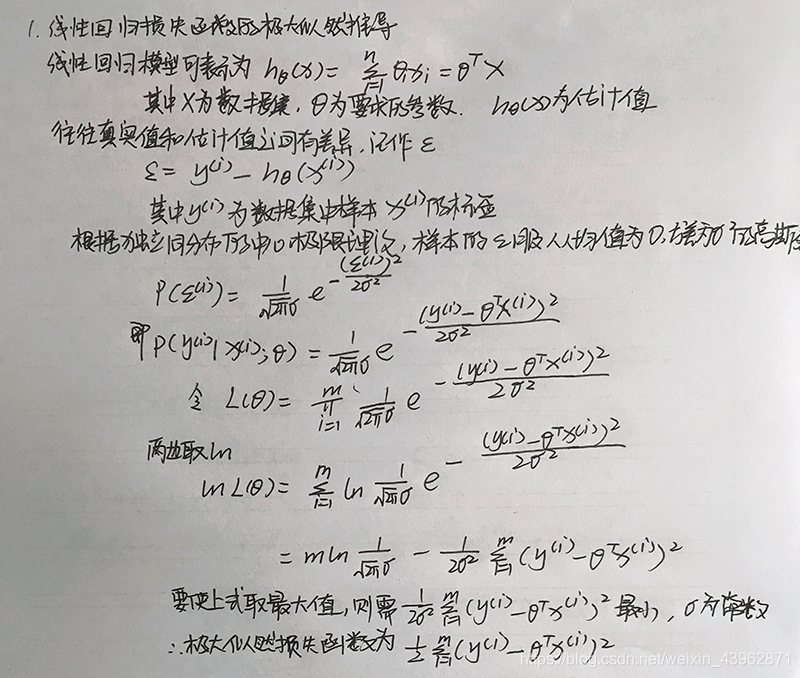 1. 线性回归损失函数的极大似然推导
线性回归模型可表示为 hθ(x) = Σ_{i=1}^{n} θixi = θ^T X
其中X为数据集, θ为要求的参数. hθ(x)为估计值
往往真实值和估计值之间有差异, 记作 ε
ε = y^(i) - hθ(x^(i))
其中y^(i)为数据集中样本 x^(i)的标签
根据独立同分布的中心极限定理, 样本的ε服从均值为0,方差为σ²的高斯
P(ε^(i)) = 1/(√(2π)σ) e^{-(ε^(i))²/(2σ²)}
即 P(y^(i)|x^(i);θ) = 1/(√(2π)σ) e^{-(y^(i) - θ^T x^(i))²/(2σ²)}
令 L(θ) = Π_{i=1}^{m} 1/(√(2π)σ) e^{-(y^(i) - θ^T x^(i))²/(2σ²)}
两边取ln
ln L(θ) = Σ_{i=1}^{m} ln 1/(√(2π)σ) e^{-(y^(i) - θ^T x^(i))²/(2σ²)}
= m ln 1/(√(2π)σ) - 1/(2σ²) Σ_{i=1}^{m} (y^(i) - θ^T x^(i))²
要使上式取最大值, 则需 1/(2σ²) Σ_{i=1}^{m} (y^(i) - θ^T x^(i))² 最小, σ为常数
∴极大似然损失函数为 1/2 Σ_{i=1}^{m} (y^(i) - θ^T x^(i))²
https://blog.csdn.net/weixin_43962871